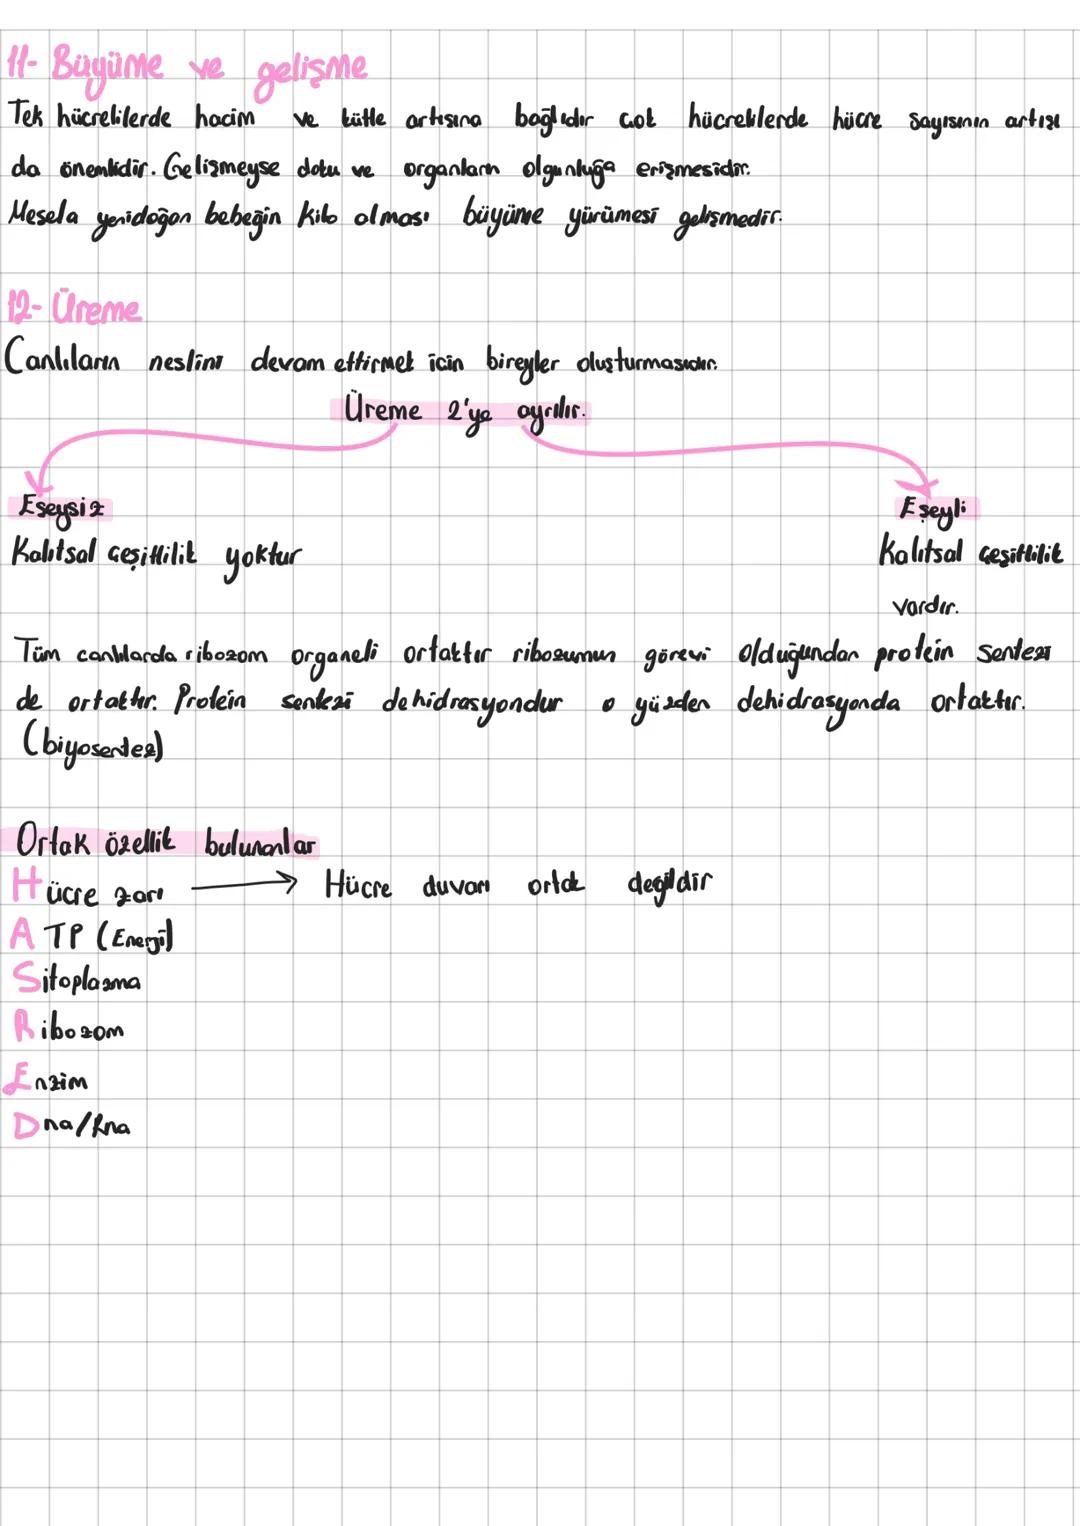 11- Büyüme ve gelişme
Tek hücrelilerde hacim ve kütle artışına bağlıdır çok hücrelilerde hücre sayısının artışı
da önemlidir. Gelişmeyse doku ve organların olgunluğa erişmesidir.
Mesela yenidoğan bebeğin kilo olması büyüme yürümesi gelişmedir.
12- Üreme
Canlıların neslini devam ettirmek için bireyler oluşturmasıdır.
Üreme 2'ye ayrılır.
Eşeysiz
Eşeyli
Kalıtsal çeşitlilik yoktur
Kalıtsal çeşitlilik
vardır.
Tüm canlılarda ribozom organeli ortaktır ribozumun görevi olduğundan protein sentezi
de ortaktır. Protein sentezi dehidrasyondur o yüzden dehidrasyonda ortaktır.
(biyosentez)
Ortak özellik bulunanlar
Hücre zarı → Hücre duvarı ortak değildir
ATP (Enerji)
Sitoplazma
Ribozom
Enzim
Dna/Rna